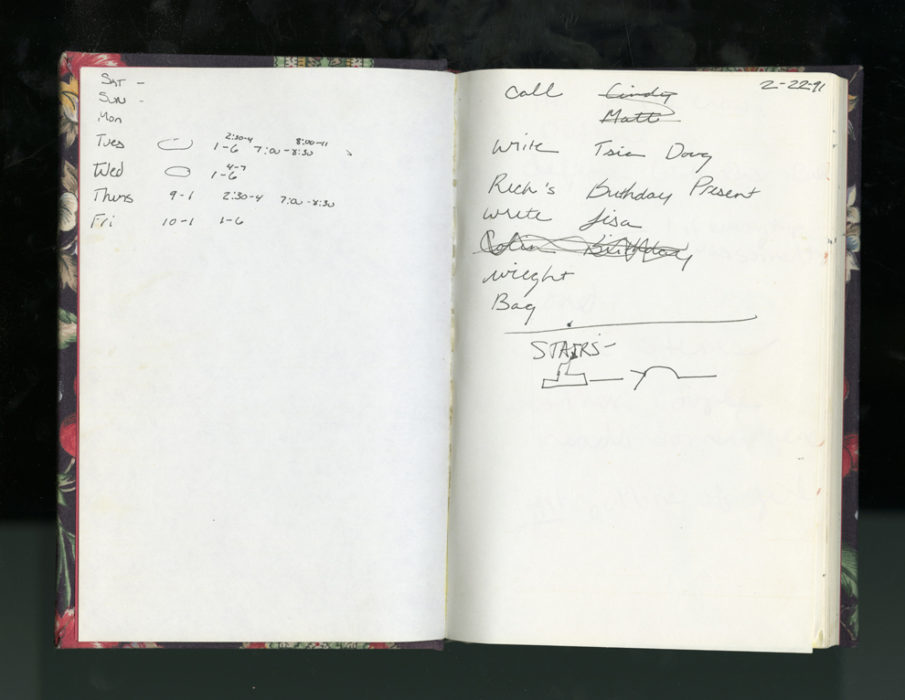 SAT -
SUN -
Mon
Tues 2:30-4 8:00-11
1-6 7:00-8:30
Wed 4-7
1-6
Thurs 9-1 2:30-4 7:00-8:30
Fri 10-1 1-6
2-22-91
Call Cindy
Matt
Write Doug
Rich's Birthday Present
write Lisa
Colin Birthday
wieght
Bag
STAIRS-